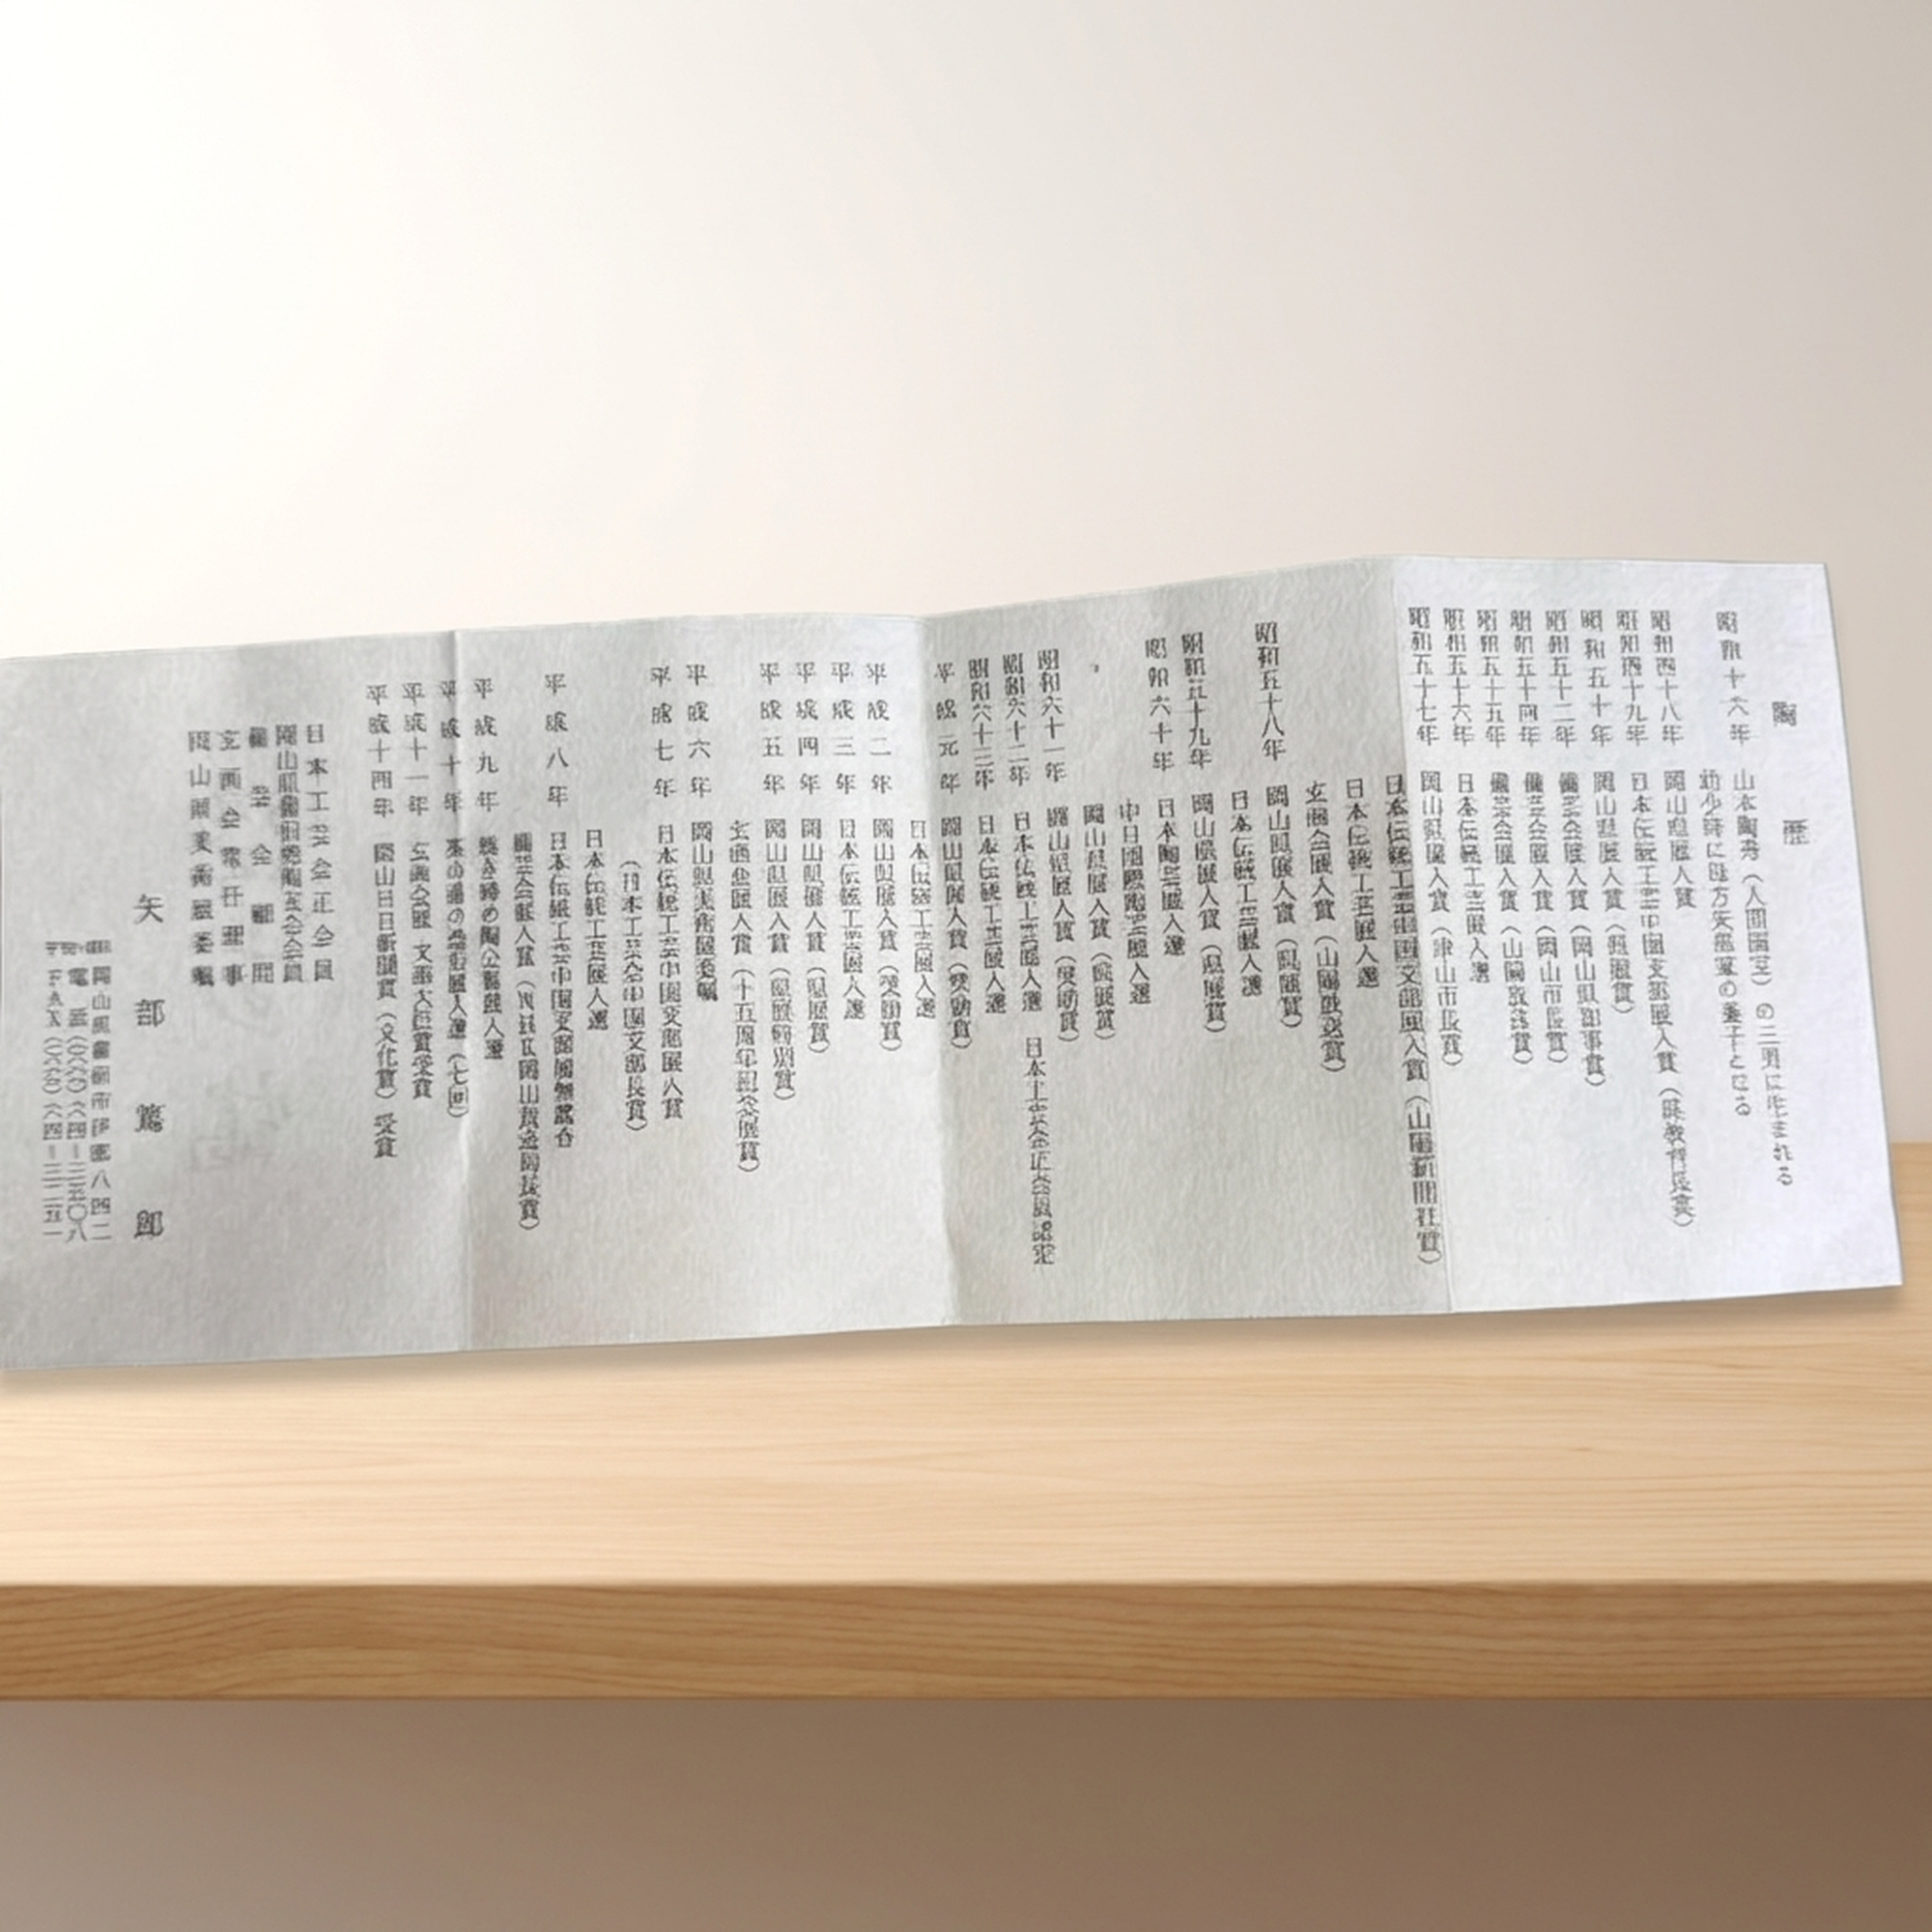 陶歴
昭和十六年 山本陶秀（人間国宝）の三男に生まれる
幼少時に母方矢部家の養子となる
昭和四十八年 岡山県展入賞
昭和四十九年 日本伝統工芸中国支部展入賞（県教育長賞）
昭和五十年 岡山県展入賞（県展賞）
昭和五十二年 備芸会展入賞（岡山県知事賞）
昭和五十四年 備芸会展入賞（岡山市長賞）
昭和五十五年 備芸会展入賞（山陽放送賞）
昭和五十六年 日本伝統工芸展入選
昭和五十七年 岡山県展入賞（津山市長賞）
日本伝統工芸中国支部展入賞（山陽新聞社賞）
日本伝統工芸展入選
玄画会展入賞（山陽放送賞）
昭和五十八年 岡山県展入賞（県展賞）
日本伝統工芸展入選
昭和五十九年 岡山県展入賞（県展賞）
昭和六十年 日本陶芸展入選
中日国際陶芸展入選
岡山県展入賞（県展賞）
昭和六十一年 岡山県展入賞（奨励賞）
昭和六十二年 日本伝統工芸展入選 日本工芸会正会員認定
昭和六十三年 日本伝統工芸展入選
平成元年 岡山県展入賞（奨励賞）
日本伝統工芸展入選
平成二年 岡山県展入賞（奨励賞）
平成三年 日本伝統工芸展入選
平成四年 岡山県展入賞（県展賞）
平成五年 岡山県展入賞（県展特別賞）
玄画会展入賞（十五周年記念展賞）
平成六年 岡山県美術展委嘱
平成七年 日本伝統工芸中国支部展入賞
（日本工芸会中国支部長賞）
日本伝統工芸展入選
平成八年 日本伝統工芸中国支部展無鑑査
備芸会展入賞
平成九年 入選
平成十年 茶の湯の造形展入選（七回）
平成十一年 玄画会展 文部大臣賞受賞
平成十四年 岡山日日新聞賞（文化賞）受賞
日本工芸会正会員
岡山県備前焼陶友会会員
備芸会顧問
玄画会常任理事
岡山県美術展委嘱
矢部篤郎
岡山県備前市伊部八四二
電話
FAX